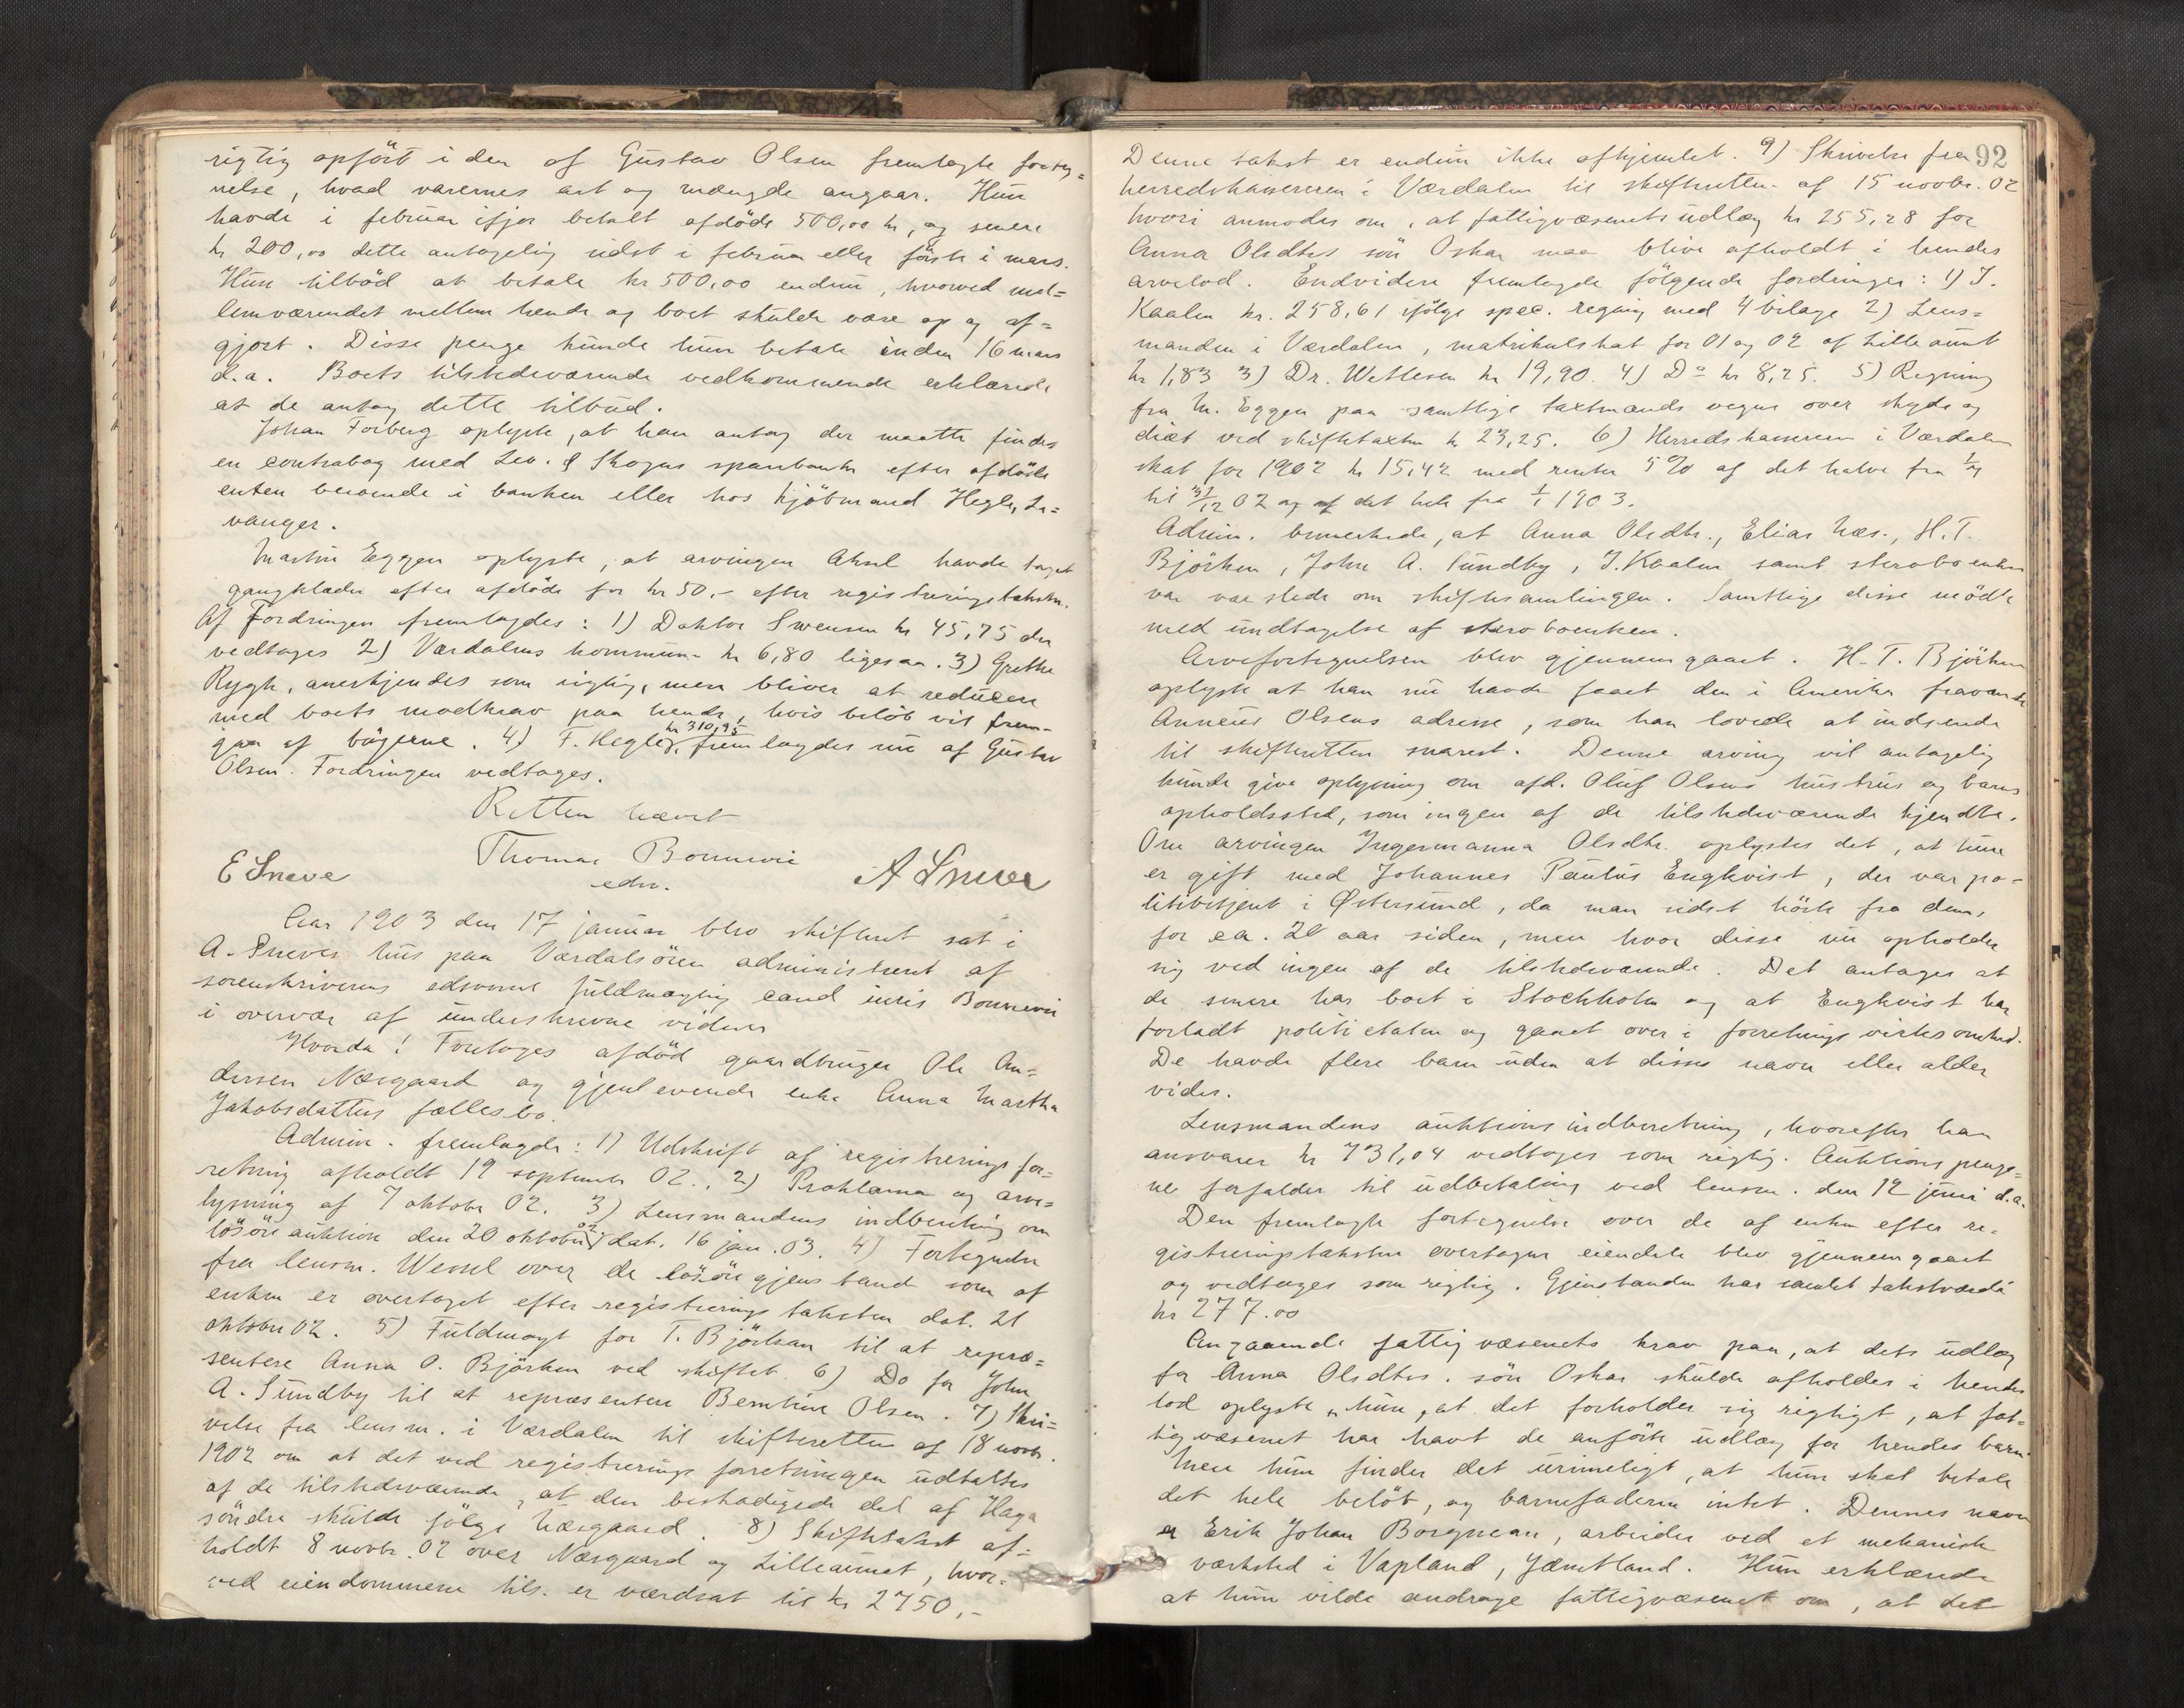 rigtig opført i den af Gustav Olsen fremlagte forteg=
nelse, hvad varernes art og mængde angaar. Hun
havde i februar ifjor betalt afdøde 500,00 kr, og senere
kr 200,00 dette antagelig sidst i februar eller først i mars.
Hun tilbød at betale kr 500,00 endnu, hvorved mel=
lemværendet mellem hende og boet skulde være op og af=
gjort. Disse penge kunde hun betale inden 16 mars
d.a. Boets tilstedeværende vedkommende erklærede
at de antog dette tilbud.
Johan Forberg oplyste, at han antog der maatte findes
en contrabog med Lev. & Skogns sparebank efter afdøde
enten beroende i banken eller hos kjøbmand Hegle, Le=
vanger.
Martin Eggen oplyste, at arvingen Aksel havde taget
gangklæder efter afdøde for kr 50.- efter registreringstaksten.
Af Fordringer fremlagdes: 1) Doktor Swensen kr 45,75 der
vedtages 2) Værdalens kommune kr 6,80 ligesaa. 3) Grethe
Rygh, anerkjendes som rigtig, men bliver at reducere
med boets modkrav paa hende, hvis beløb vil frem-
gaa af bøgerne. 4) F. Hegle, kr 310,95 fremlagdes nu af Gustav
Olsen. Fordringen vedtages.
Retten hævet
Thomas Bonnevie
edsv.
E Sneve
A Sneve
Aar 1903 den 17 januar blev skifteret sat i
A. Sneves hus paa Værdalsøren administreret af
sorenskriverens edsvorne fuldmægtig cand juris Bonnevie
i overvær af underskrevne vidner
Hvorda! Foretoges afdød gaardbruger Ole An=
dersen Næsgaard og gjenlevende enke Anna Martha
Jakobsdatters fællesbo.
Admin. fremlagde: 1) Udskrift af registreringsfor=
retning afholdt 19 september 02. 2) Proklama og arve=
lysning af 7 oktober 02. 3) Lensmandens indberetning om
løsøreauktion den 20 oktober 02 dat. 16 jan. 03. 4) Fortegnelse
fra lensm. Wessel over de løsøregjenstand som af
enken er overtaget efter registreringstaksten dat. 21
oktober 02. 5) Fuldmagt for T. Bjørken til at repræ=
sentere Anna O. Bjørken ved skiftet. 6) Do for John
A. Sundby til at repræsentere Berntine Olsen. 7) Skri=
velse fra lensm. i Værdalen til skifteretten af 18 novbr.
1902 om at det ved registreringsforretningen udtaltes
af de tilstedeværende, at den beskadigede del af Haga
søndre skulde følge Næsgaard. 8) Skiftetakst af=
holdt 8 novbr. 02 over Næsgaard og Lilleaunet, hvor=
ved eiendommene tils. er værdsat til kr 2750,-
92
Denne takst er endnu ikke afhjemlet. 9) Skrivelse fra
herredskassereren i Værdalen til skifteretten af 15 novbr. 02
hvori anmodes om, at fattigvæsenets udlæg kr 255,28 for
Anna Olsdtrs søn Oskar maa blive afholdt i hendes
arvelod. Endvidere fremlagde følgende fordringer: 1) J.
Kaalen kr. 258,61 ifølge spec. regning med 4 bilage 2) Lens=
manden i Værdalen, matrikulskat for 01 og 02 af Lilleaunet
kr 1,83 3) Dr. Wetlesen kr 19,90. 4) Do kr 8,25. 5) Regning
fra M. Eggen paa samtlige taxtmænds vegne over skyds og
diæt ved skiftetaxten kr 23,25. 6) Herredskassereren i Værdalen
skat for 1902 kr 15,42 med renter 5 % af det halve fra 1/7
til 31/12 02 og af det hele fra 1/1 1903.
Admin. bemerkede, at Anna Olsdtr., Elias Næs., H. T.
Bjørken, John A. Sundby, J. Kaalen samt sterboenken
var varslede om skiftesamlingen. Samtlige disse mødte
med undtagelse af sterboenken.
Arvefortegnelsen blev gjennemgaaet. H. T. Bjørken
oplyste at han nu havde faaet den i Amerika fraværende
Anneus Olsens adresse, som han lovede at indsende
til skifteretten snarest. Denne arving vil antagelig
kunde give oplysning om afd. Oluf Olsens hustrus og barns
opholdssted, som ingen af de tilstedeværende kjendte.
Om arvingen Ingermanna Olsdtr. oplystes det, at hun
er gift med Johannes Paulus Engkvist, der var po=
litibetjent i Østersund, da man sidst hørte fra dem,
for ca. 20 aar siden, men hvor disse nu opholder
sig ved ingen af de tilstedeværende. Det antages at
de senere har boet i Stockholm og at Engkvist har
forladt politietaten og gaaet over i forretningsvirksomhed.
De havde flere barn uden at disses navn eller alder
vides.
Lensmandens auktionsindberetning, hvorefter han
ansvarer kr 731,04 vedtages som rigtig. Auktionspenge=
ne forfalder til udbetaling ved lensm. den 12 juni d.a.
Den fremlagte fortegnelse over de af enken efter re=
gistreringstaksten overtagne eiendele blev gjennemgaaet
og vedtages som rigtig. Gjenstanden har samlet takstværdi
kr 277.00
Angaaende fattigvæsenets krav paa, at dets udlæg
for Anna Olsdtrs. søn Oskar skulde afholdes i hendes
lod oplyste hun, at det forholder sig rigtigt, at fat=
tigvæsenet har havt de anførte udlæg for hendes barn.
Men hun finder det urimeligt, at hun skal betale
det hele beløb, og barnefaderen intet. Dennes navn
er Erik Johan Borgman, arbeider ved et mekanisk
værksted i Vapland, Jæmtland. Hun erklærede
at hun vilde andrage fattigvæsenet om, at det